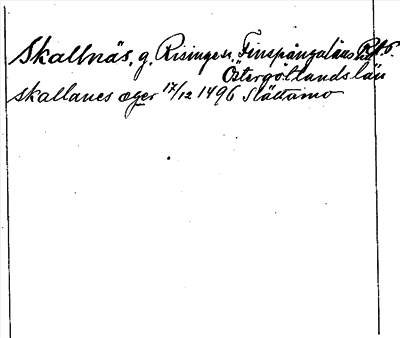 Skallnäs, g. Risinge sn. Finspångaläns hd
Östergötlands län
skallanes æger 17/12 1496 Slättamo